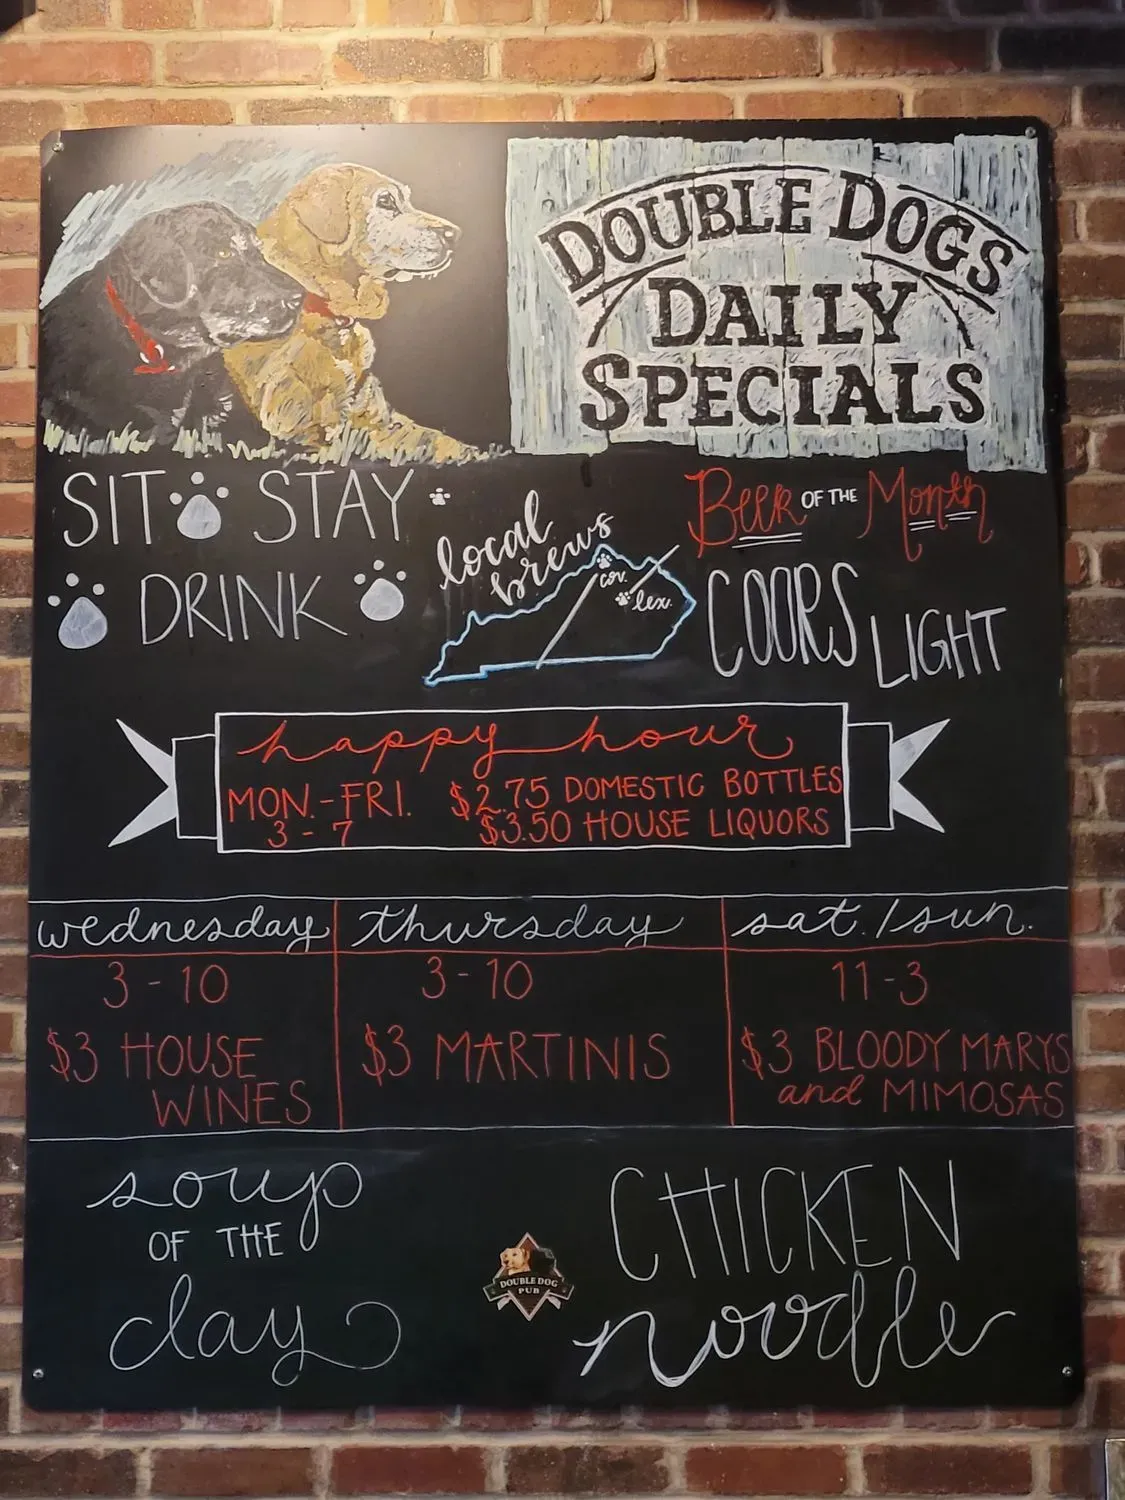 DOUBLE DOGS
DAILY
SPECIALS
SIT STAY
DRINK
local
brews
cov.
lex.
BEER OF THE MONTH
COORS
LIGHT
happy hour
MON.-FRI.
3 - 7
$2.75 DOMESTIC BOTTLES
$3.50 HOUSE LIQUORS
wednesday
3 - 10
$3 HOUSE
WINES
thursday
3 - 10
$3 MARTINIS
sat./sun.
11 - 3
$3 BLOODY MARYS
and MIMOSAS
soup
OF THE
day
DOUBLE DOG
PUB
CHICKEN
noodle